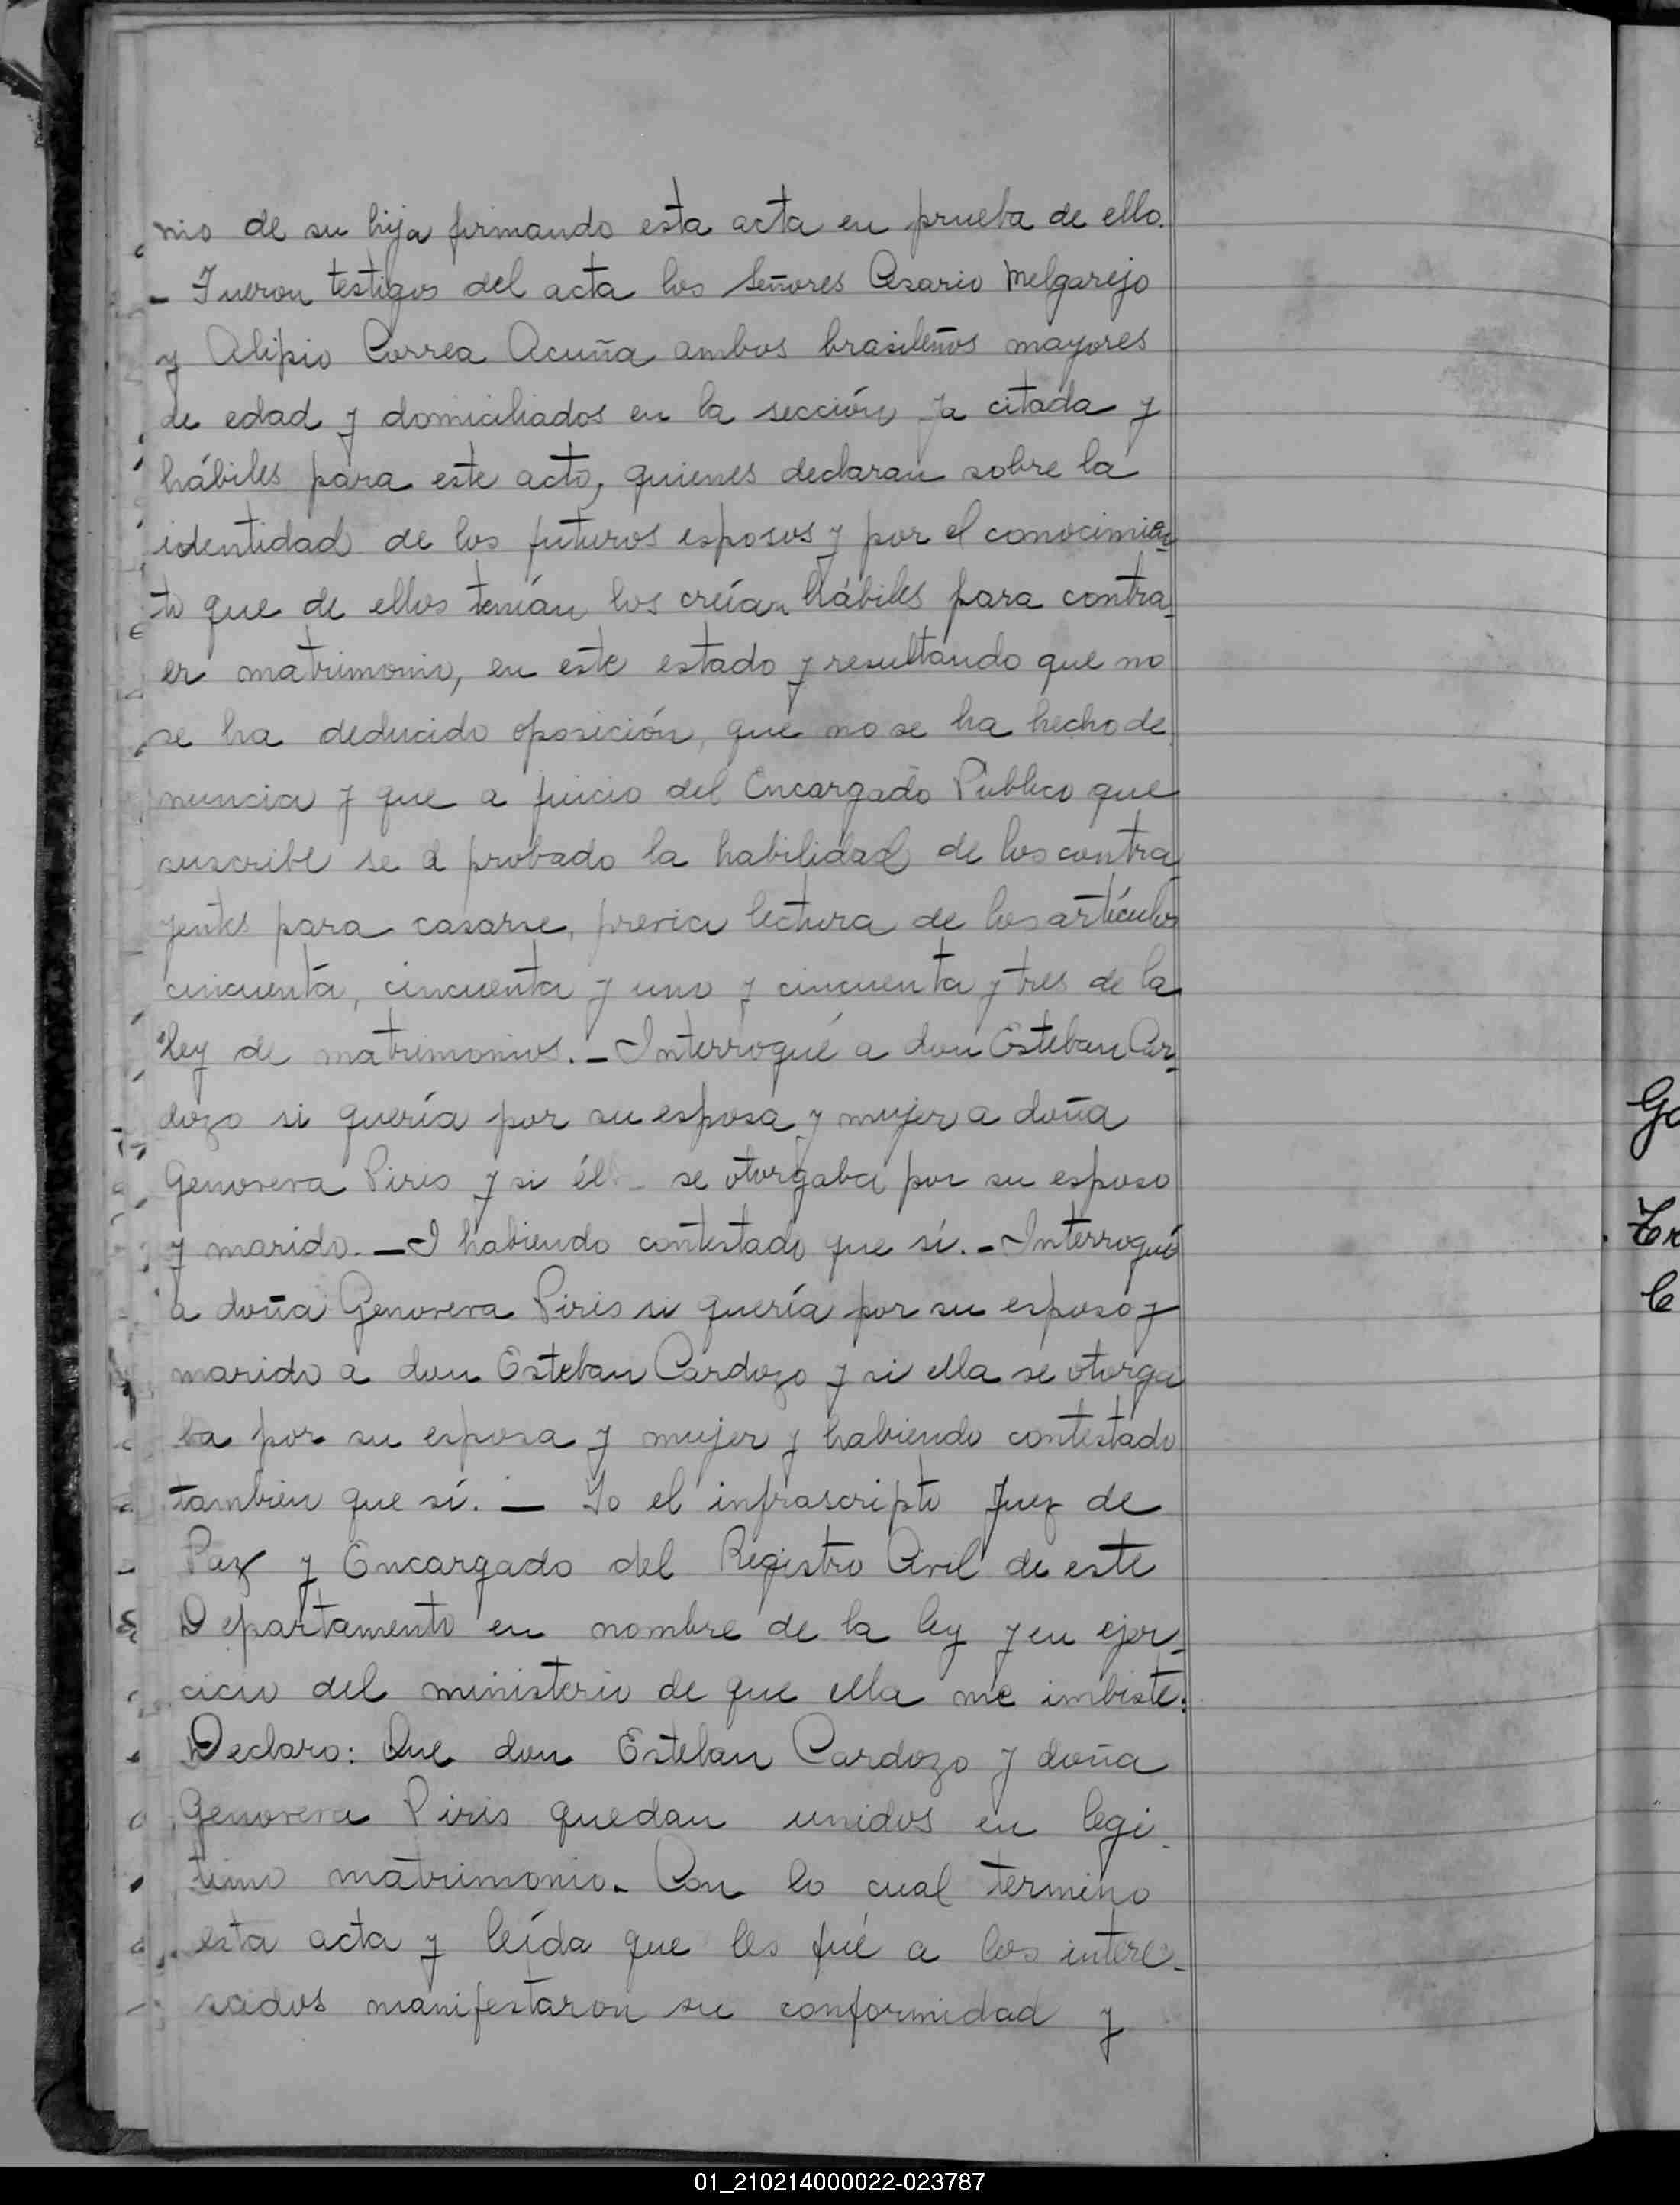 nio de su hija firmando esta acta en prueba de ello.
- Fueron testigos del acta los Señores Cesario Melgarejo
y Alipio Correa Acuña ambos brasileños mayores
de edad y domiciliados en la sección ya citada y
hábiles para este acto, quienes declaran sobre la
identidad de los futuros esposos y por el conocimien
to que de ellos tenían los creían hábiles para contra-
er matrimonio, en este estado y resultando que no
se ha deducido oposición, que no se ha hecho de
nuncia y que a juicio del Encargado Público que
suscribe se a probado la habilidad de los contra
yentes para casarse, previa lectura de los artículos
cincuenta, cincuenta y uno y cincuenta y tres de la
ley de matrimonios. - Interrogué a don Esteban Car-
dozo si quería por su esposa y mujer a doña
Genoveva Piris y si él se otorgaba por su esposo
y marido. - I habiendo contestado que sí. - Interrogué
a doña Genoveva Piris si quería por su esposo y
marido a don Esteban Cardozo y si ella se otorga
ba por su esposa y mujer y habiendo contestado
tambien que sí. - Yo el infrascripto Juez de
Paz y Encargado del Registro Civil de este
Departamento en nombre de la ley y en ejer-
cicio del ministerio de que ella me imbiste:
Declaro: Que don Esteban Cardozo y doña
Genoveva Piris quedan unidos en legi-
timo matrimonio. Con lo cual termino
esta acta y leída que les fué a los intere-
sados manifestaron su conformidad y
Ga
C
01_210214000022-023787